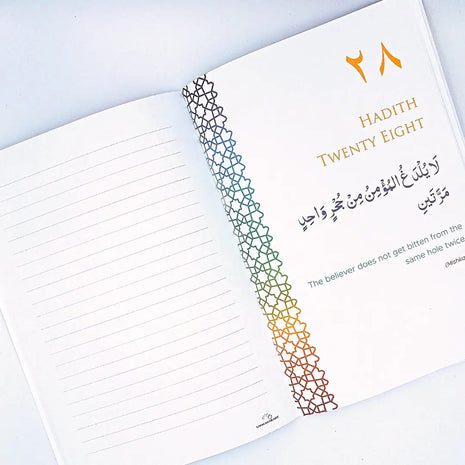 ٢٨
HADITH
TWENTY EIGHT
لَا يُلْدَغُ المُؤْمِنُ مِنْ جُحْرٍ وَاحِدٍ
مَرَّتَيْنِ
The believer does not get bitten from the
same hole twice